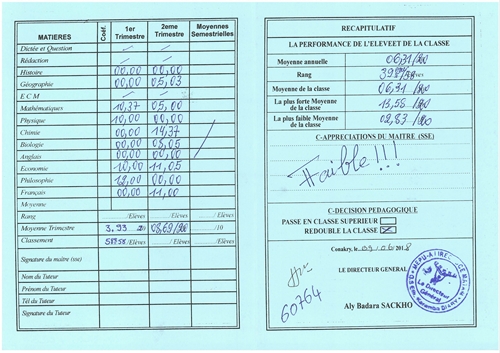 MATIÈRES Coéf. 1er Trimestre 2eme Trimestre Moyennes Semestrielles
Dictée et Question / /
Rédaction / /
Histoire 00,00 00,00
Géographie 00,00 05,03
E C M / /
Mathématiques 10,37 05,00
Physique 10,00 00,00
Chimie 00,00 14,37
Biologie 00,00 08,05
Anglais 00,00 00,00
Economie 10,00 11,05
Philosophie 12,00 00,00
Français 00,00 11,00
Moyenne
Rang /Elèves /Elèves /Elèves
Moyenne Trimestre 3,93 08,69/20 /10
Classement /Elèves /Elèves /Elèves
Signature du maître (sse)
Nom du Tuteur
Prénom du Tuteur
Tél du Tuteur
Signature du Tuteur
RECAPITULATIF
LA PERFORMANCE DE L'ELEVE ET DE LA CLASSE
Moyenne annuelle 06,31/20
Rang
Moyenne de la classe 06,31
La plus forte Moyenne de la classe 13,58
La plus faible Moyenne de la classe 02,83
C-APPRECIATIONS DU MAITRE (SSE)
Faible!!!
C-DECISION PEDAGOGIQUE
PASSE EN CLASSE SUPERIEUR
REDOUBLE LA CLASSE
Conakry, le 09/06/2018
LE DIRECTEUR GENERAL
60764
Le Directeur
Général
Aly Badara SACKHO